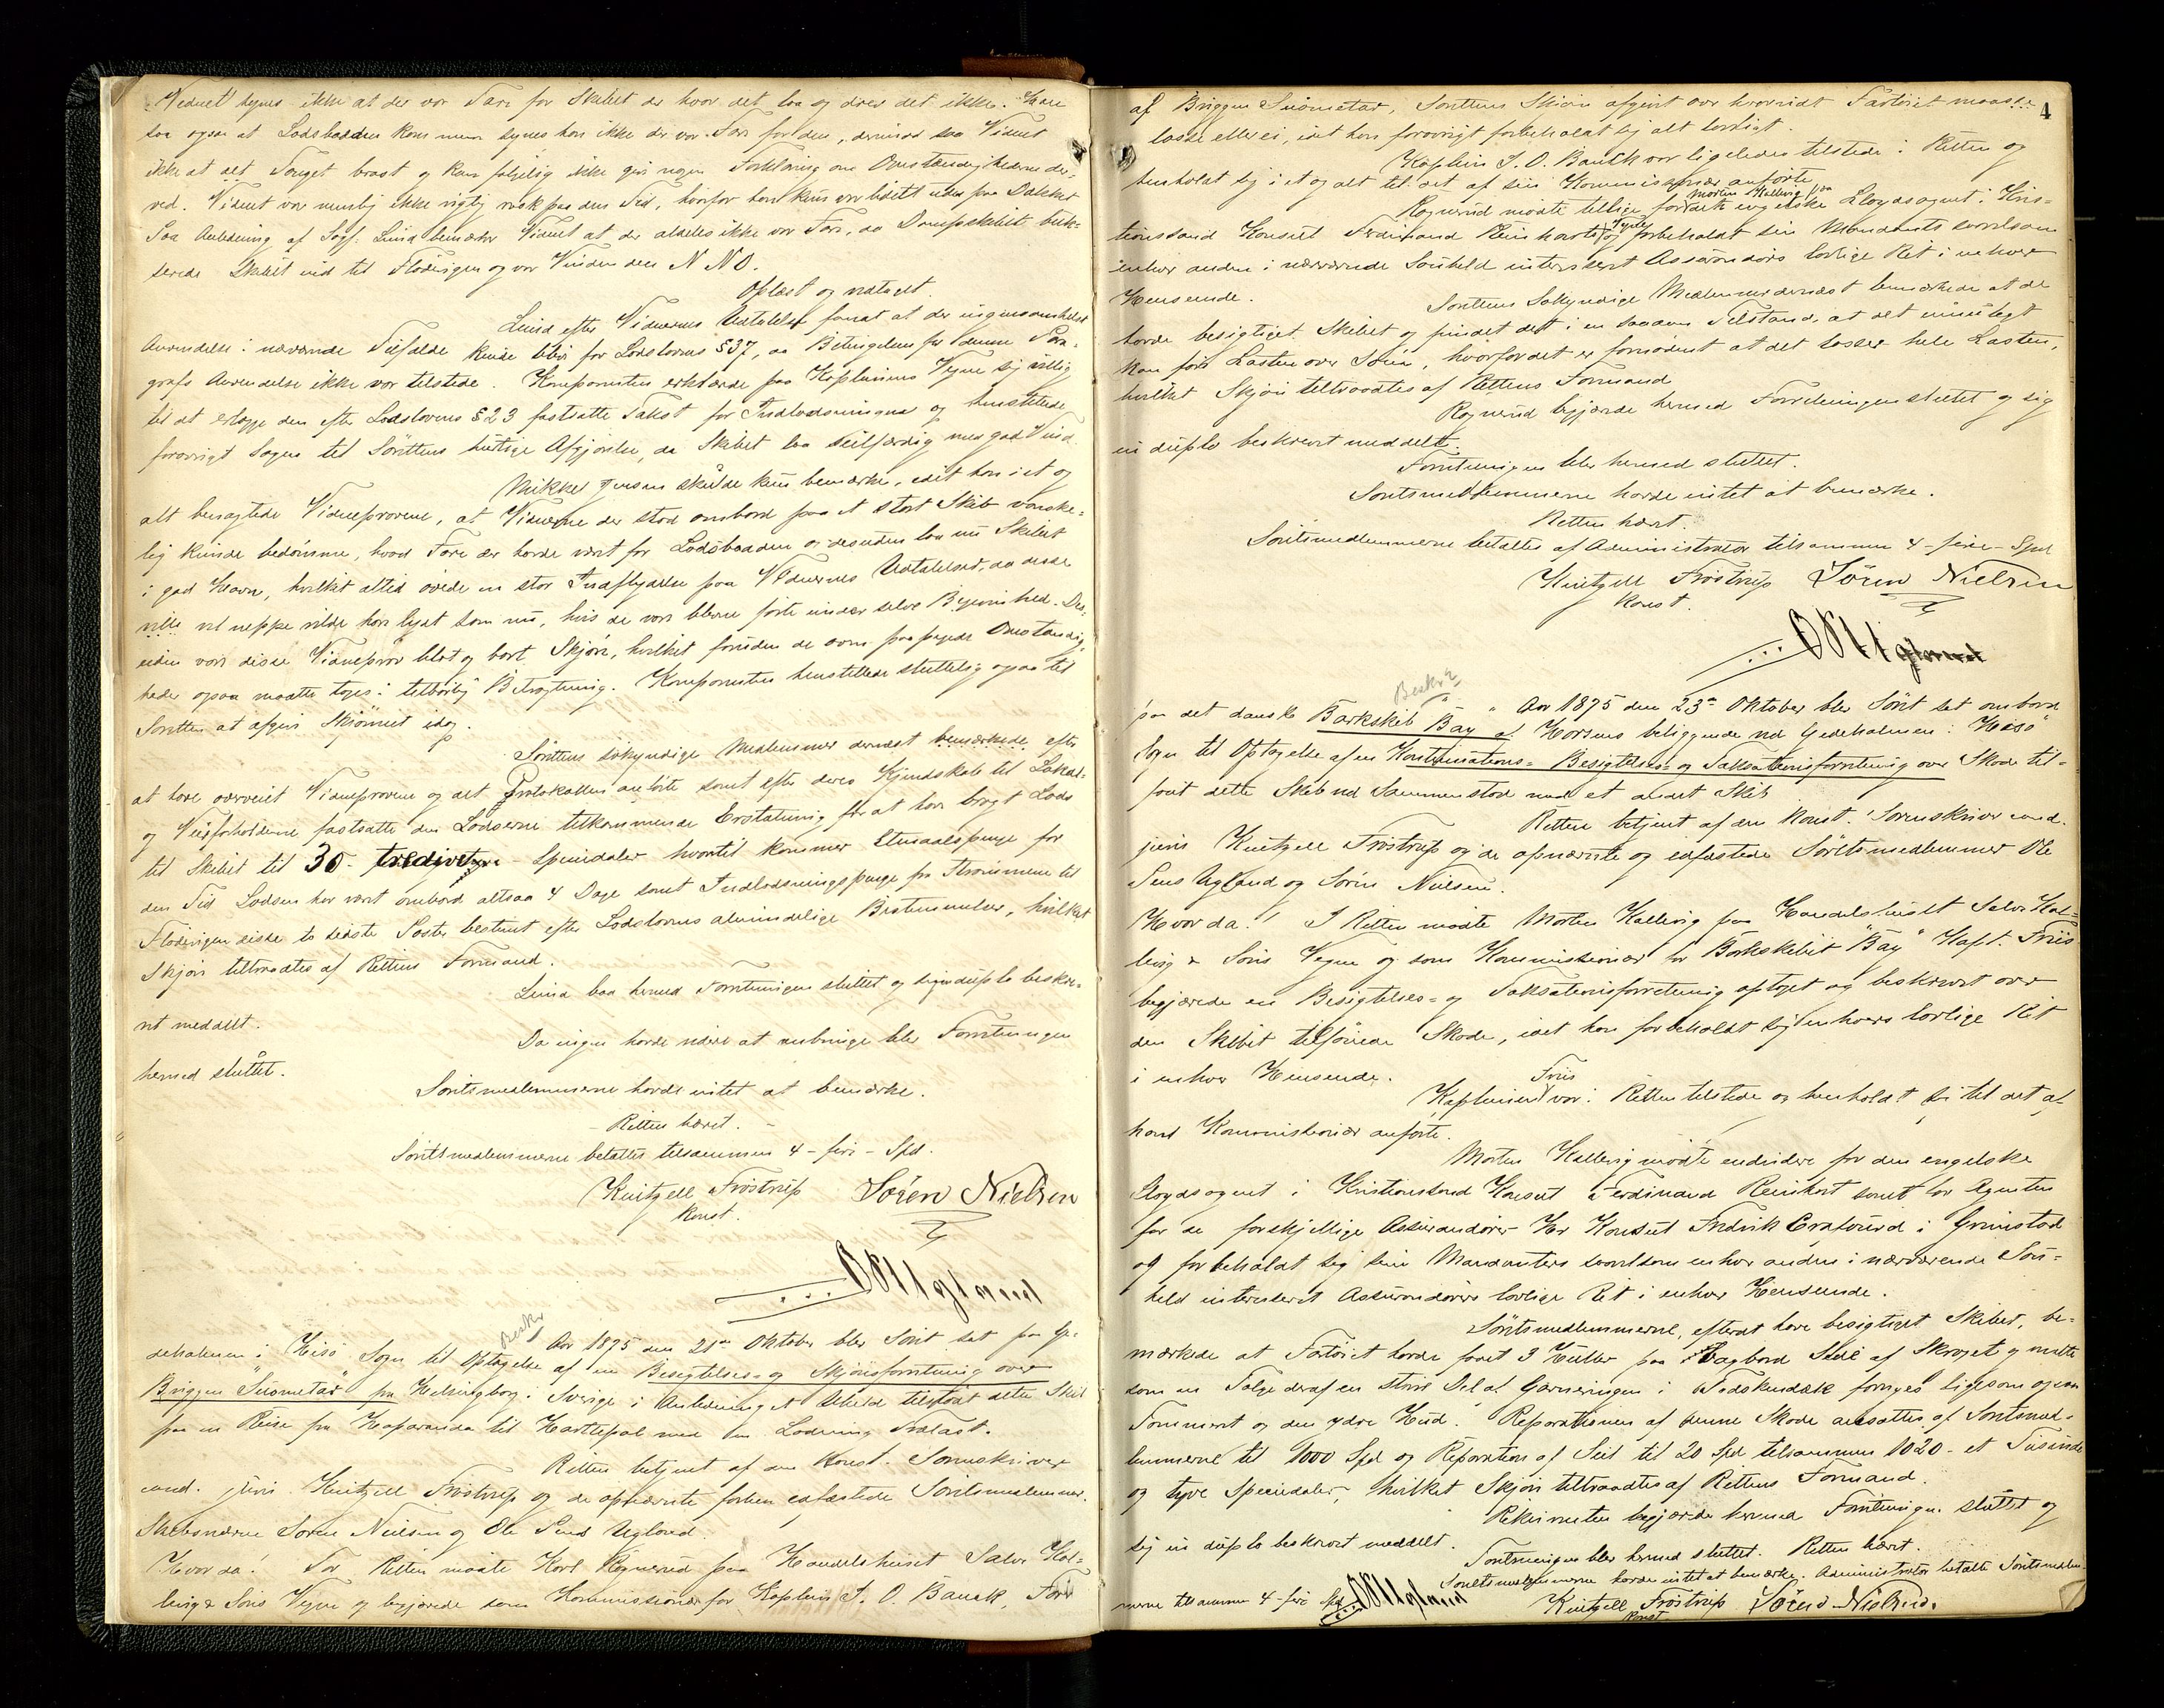 Vidnet synes ikke at der var Fare for Skibet der hvor det laa og drev det ikke. Han
saa ogsaa at Lodsbaaden kom men synes han ikke der var Fare for den, derimod saa Vidnet
ikke at det Touget brast og kan følgelig ikke give nogen Forklaring om Omstændighederne der-
ved. Vidnet var nemlig ikke rigtig rask paa den Tid, hvorfor han kun var lidet ude paa Dækket
Paa Anledning af Sagf. Lund bemærker Vidnet at der aldeles ikke var Fare, da Dampskibet buk-
serede Skibet ind til Flödevigen og var Vinden den N NO.
Oplæst og vedtaget.
Lund efter Vidnernes Udtalelser format at der ingensomhelst
Anvendelse i nærværende Tilfælde kunde blive for Lodslovens § 37, da Betingelsen for denne Para-
grafs Anvendelse ikke var tilstede. Komparenten erklærede paa Kapteinens Vegne sig villig
til at erlægge den efter Lodslovens § 23 fastsatte Takst for Indlodsningen og henstillede
forøvrigt Sagen til Sörettens hurtige Afgjørelse, da Skibet laa seilfærdig med god Vind.
Mikkel Jensen skulde kun bemærke, idet han i et og
alt benægtede Vidneprovene, at Vidnerne der stod ombord paa et stort Skib vanske-
lig kunde bedömme, hvad Fare der havde været for Lodsbaaden og desuden laa nu Skibet
i god Havn, hvilket altid øvede en stor Indflydelse paa Vidnernes Udtalelser, da disse
vilde vel neppe vilde have lydt som nu, hvis de vare blevne førte under selve Begivenhed. Des-
uden vare disse Vidneprov blot og bart Skjøn, hvilket foruden de oven paapegede Omstændig-
heder ogsaa maatte tages i tilbørlig Betragtning. Komparenten henstillede sluttelig ogsaa til
Søretten at afgive Skjønnet idag.
Sörettens sökyndige Medlemmer dernæst bemærkede efter
at have overveiet Vidneprovene og det Protokollen anførte samt efter deres Kjendskab til Lokal-
og Veirforholdene fastsatte den Lodserne tilkommende Erstatning for at have bragt Lods
til Skibet til 30 - tredive - Speciedaler hvortil kommer Etmaalspenge for
den Tid Lodsen har været ombord altsaa 4 Dage samt Indlodsningspenge fra Strömmene til
Flödevigen disse to sidste Poster bestemt efter Lodslovens almindelige Bestemmelser, hvilket
Skjøn tiltraadtes af Rettens Formand.
Lund bad hermed Forretningen sluttet og sig in duplo beskre-
vet meddelt.
Da ingen havde videre at anbringe blev Forretningen
hermed sluttet.
Søretsmedlemmerne havde intet at bemærke.
Retten hævet.
Søretsmedlemmerne betaltes tilsammen 4 - fire - Spd.
Kuitzell Frøstrup Sören Nielsen
konst.
OSUgland
Beskr
Aar 1875 den 21de Oktober blev Søret sat paa Ge-
deholmen i Hisö Sogn til Optagelse af en Besigtelses- og Skjønsforretning over
Briggen "Suometar" fra Helsingborg i Sverige i Anledning et Uheld tilstødt dette Skib
paa en Reise fra Haparanda til Hartlepol med en Ladning Trælast.
Retten betjent af den konst. Sorenskriver
cand. juris Kuitzell Frøstrup og de opnævnte forhen edfæstede Søretsmedlemmer
Skibsrederne Søren Nielsen og Ole Jens Ugland.
Hvorda! For Retten mødte Karl Rognerud paa Handelshuset Salve Kal-
levig & Søns Vegne og begjærede som Kommissionær for Kaptein J. O. Bauck, Fører
4
af Briggen Suometar, Sørettens Skjøn afgivet over hvorvidt Fartøiet maatte
losse eller ei, idet han forøvrigt forbeholdt sig alt lovligt.
Kaptein J. O. Bauck var ligeledes tilstede i Retten og
henholdt sig i et og alt til det af sin Kommissionær anførte.
Morten Kallevig paa
Rognerud mødte tillige for den engelske Lloydsagent i Kris-
tianssand Konsul Ferdinand Reinhardts Vegne og forbeholdt sin Mandants saavelsom
enhver anden i nærværende Søuheld interesseret Assurandørs lovlige Ret i enhver
Henseende.
Sørettens Søkyndige Medlemmer dernæst bemærkede at de
havde besigtiget Skibet og fundet det i en saadan Tilstand, at det umuligt
kan føre Lasten over Søen, hvorfor det er fornødent at det losser hele Lasten,
hvilket Skjøn tiltraadtes af Rettens Formand
Rognerud begjærede hermed Forretningen sluttet og sig
in duplo beskrevet meddelt.
Forretningen blev hermed sluttet.
Søretsmedlemmerne havde intet at bemærke.
Retten hævet.
Søretsmedlemmerne betaltes af Administrator tilsammen 4 - fire - Spd
Kuitzell Frøstrup Sören Nielsen
konst.
OSUgland
Beskr
Aar 1875 den 23de Oktober blev Søret sat ombord
paa det danske Barkskib "Bay" af Horsens beliggende ved Gedeholmen i Hisö
Sogn til Optagelse af en Kontinuations- Besigtelses- og Taksationsforretning over Skade til-
føiet dette Skib ved Sammenstød med et andet Skib
Retten betjent af den konst. Sorenskriver cand.
juris Kuitzell Frøstrup og de opnævnte og edfæstede Søretsmedlemmer Ole
Jens Ugland og Søren Nielsen.
Hvorda! I Retten mødte Morten Kallevig paa Handelshuset Salve Kal-
levig & Søns Vegne og som Kommissionær for Barkskibet "Bay" Kapt. Friis
begjærede en Besigtelses- og Taksationsforretning optaget og beskrevet over
den Skibet tilføiede Skade, idet han forbeholdt sig enhvers lovlige Ret
i enhver Henseende.
Friis
Kapteinen var i Retten tilstede og henholdt sig til det af
hans Kommissionær anførte.
Morten Kallevig mødte endvidere for den engelske
Lloydsagent i Kristianssand Konsul Ferdinand Reinhart samt for Agenten
for de forskjellige Assurandører Hr Konsul Fredrik Crawfurd i Grimstad
og forbeholdt sig sine Mandanters saavelsom enhver anden i nærværende Søu-
held interesseret Assurandørers lovlige Ret i enhver Henseende.
Søretsmedlemmerne, efterat have besigtiget Skibet, be-
mærkede at Fartøiet havde faaet 3 Huller paa Bagbord Side af Skroget og maatte
som en Følge deraf en stor Del af Garneringen i Mellemdæk fornyes ligesom ogsaa
Tømmeret og den ydre Hud. Reparationen af denne Skade ansattes af Søretsmed-
lemmerne til 1000 Spd og Reparation af Seil til 20 Spd tilsammen 1020 - et Tusinde
og tyve Speciedaler, hvilket Skjøn tiltraadtes af Rettens Formand.
Rekvirenten begjærede hermed Forretningen sluttet og
sig in duplo beskrevet meddelt.
Forretningen blev hermed sluttet. Retten hævet.
Søretsmedlemmerne havde intet at bemærke. Administrator betalte Søretsmedlem-
merne tilsammen 4 - fire Spd OSUgland
Kuitzell Frøstrup Sören Nielsen.
konst